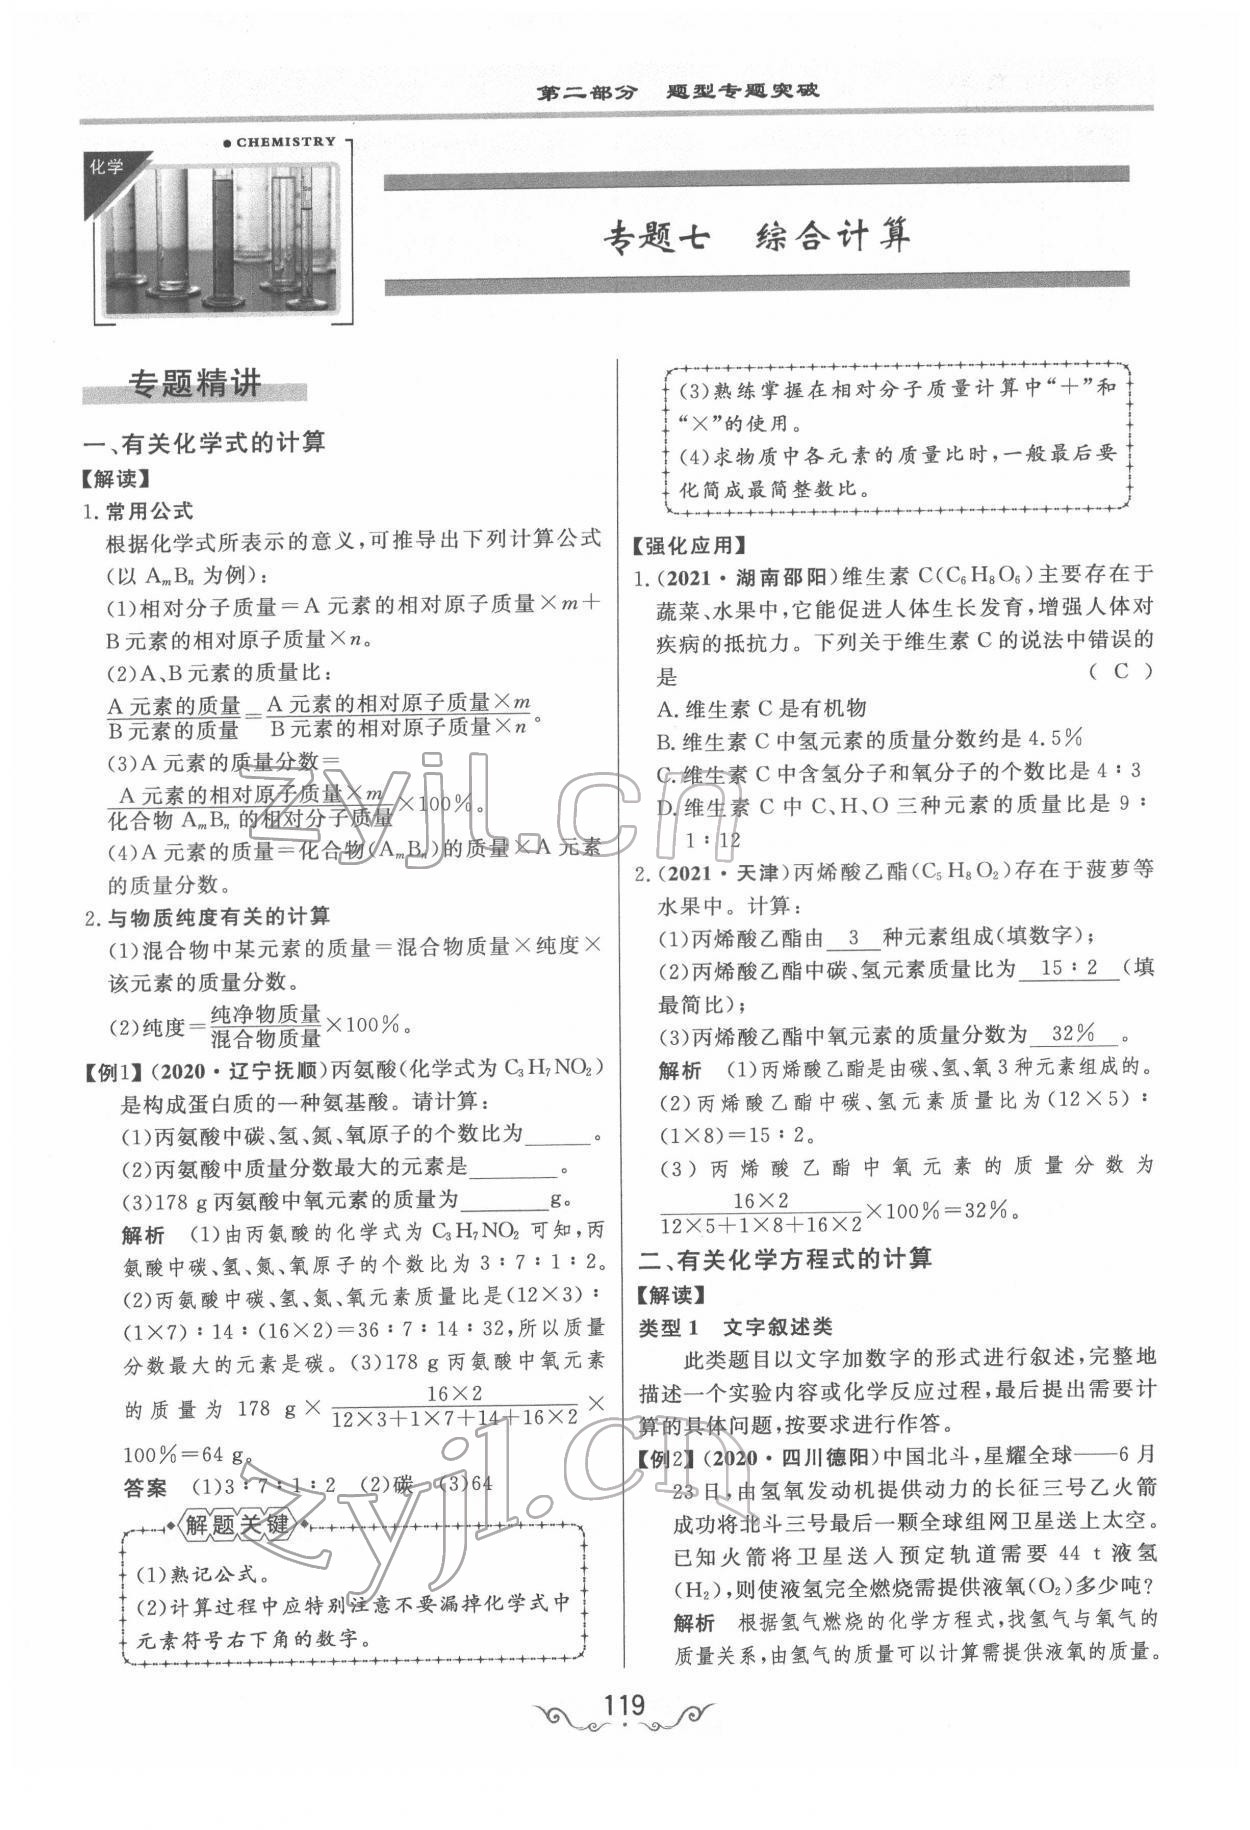 第二部分 题型专题突破
● CHEMISTRY
化学
专题七 综合计算
专题精讲
一、有关化学式的计算
【解读】
1. 常用公式
根据化学式所表示的意义,可推导出下列计算公式
(以 AₘBₙ 为例):
(1)相对分子质量=A 元素的相对原子质量×m+
B 元素的相对原子质量×n。
(2)A、B 元素的质量比:
A 元素的质量/B 元素的质量=A 元素的相对原子质量×m/B 元素的相对原子质量×n。
(3)A 元素的质量分数=
A 元素的相对原子质量×m/化合物 AₘBₙ 的相对分子质量×100%。
(4)A 元素的质量=化合物(AₘBₙ)的质量×A 元素
的质量分数。
2. 与物质纯度有关的计算
(1)混合物中某元素的质量=混合物质量×纯度×
该元素的质量分数。
(2)纯度=纯净物质量/混合物质量×100%。
【例1】(2020·辽宁抚顺)丙氨酸(化学式为 C₃H₇NO₂)
是构成蛋白质的一种氨基酸。请计算:
(1)丙氨酸中碳、氢、氮、氧原子的个数比为______。
(2)丙氨酸中质量分数最大的元素是________。
(3)178 g 丙氨酸中氧元素的质量为________g。
解析 (1)由丙氨酸的化学式为 C₃H₇NO₂ 可知,丙
氨酸中碳、氢、氮、氧原子的个数比为 3∶7∶1∶2。
(2)丙氨酸中碳、氢、氮、氧元素质量比是(12×3)∶
(1×7)∶14∶(16×2)=36∶7∶14∶32,所以质量
分数最大的元素是碳。(3)178 g 丙氨酸中氧元素
的质量为 178 g×16×2/12×3+1×7+14+16×2×
100%=64 g。
答案 (1)3∶7∶1∶2 (2)碳 (3)64
解题关键
(1)熟记公式。
(2)计算过程中应特别注意不要漏掉化学式中
元素符号右下角的数字。
(3)熟练掌握在相对分子质量计算中“+”和
“×”的使用。
(4)求物质中各元素的质量比时,一般最后要
化简成最简整数比。
【强化应用】
1. (2021·湖南邵阳)维生素 C(C₆H₈O₆)主要存在于
蔬菜、水果中,它能促进人体生长发育,增强人体对
疾病的抵抗力。下列关于维生素 C 的说法中错误的
是 ( C )
A. 维生素 C 是有机物
B. 维生素 C 中氢元素的质量分数约是 4.5%
C. 维生素 C 中含氢分子和氧分子的个数比是 4∶3
D. 维生素 C 中 C、H、O 三种元素的质量比是 9∶
1∶12
2. (2021·天津)丙烯酸乙酯(C₅H₈O₂)存在于菠萝等
水果中。计算:
(1)丙烯酸乙酯由 3 种元素组成(填数字);
(2)丙烯酸乙酯中碳、氢元素质量比为 15∶2 (填
最简比);
(3)丙烯酸乙酯中氧元素的质量分数为 32% 。
解析 (1)丙烯酸乙酯是由碳、氢、氧 3 种元素组成的。
(2)丙烯酸乙酯中碳、氢元素质量比为(12×5)∶
(1×8)=15∶2。
(3)丙烯酸乙酯中氧元素的质量分数为
16×2/12×5+1×8+16×2×100%=32%。
二、有关化学方程式的计算
【解读】
类型 1 文字叙述类
此类题目以文字加数字的形式进行叙述,完整地
描述一个实验内容或化学反应过程,最后提出需要计
算的具体问题,按要求进行作答。
【例2】(2020·四川德阳)中国北斗,星耀全球——6 月
23 日,由氢氧发动机提供动力的长征三号乙火箭
成功将北斗三号最后一颗全球组网卫星送上太空。
已知火箭将卫星送人预定轨道需要 44 t 液氢
(H₂),则使液氢完全燃烧需提供液氧(O₂)多少吨?
解析 根据氢气燃烧的化学方程式,找氢气与氧气的
质量关系,由氢气的质量可以计算需提供液氧的质量。
119
zyjl.cn
zyjl.cn